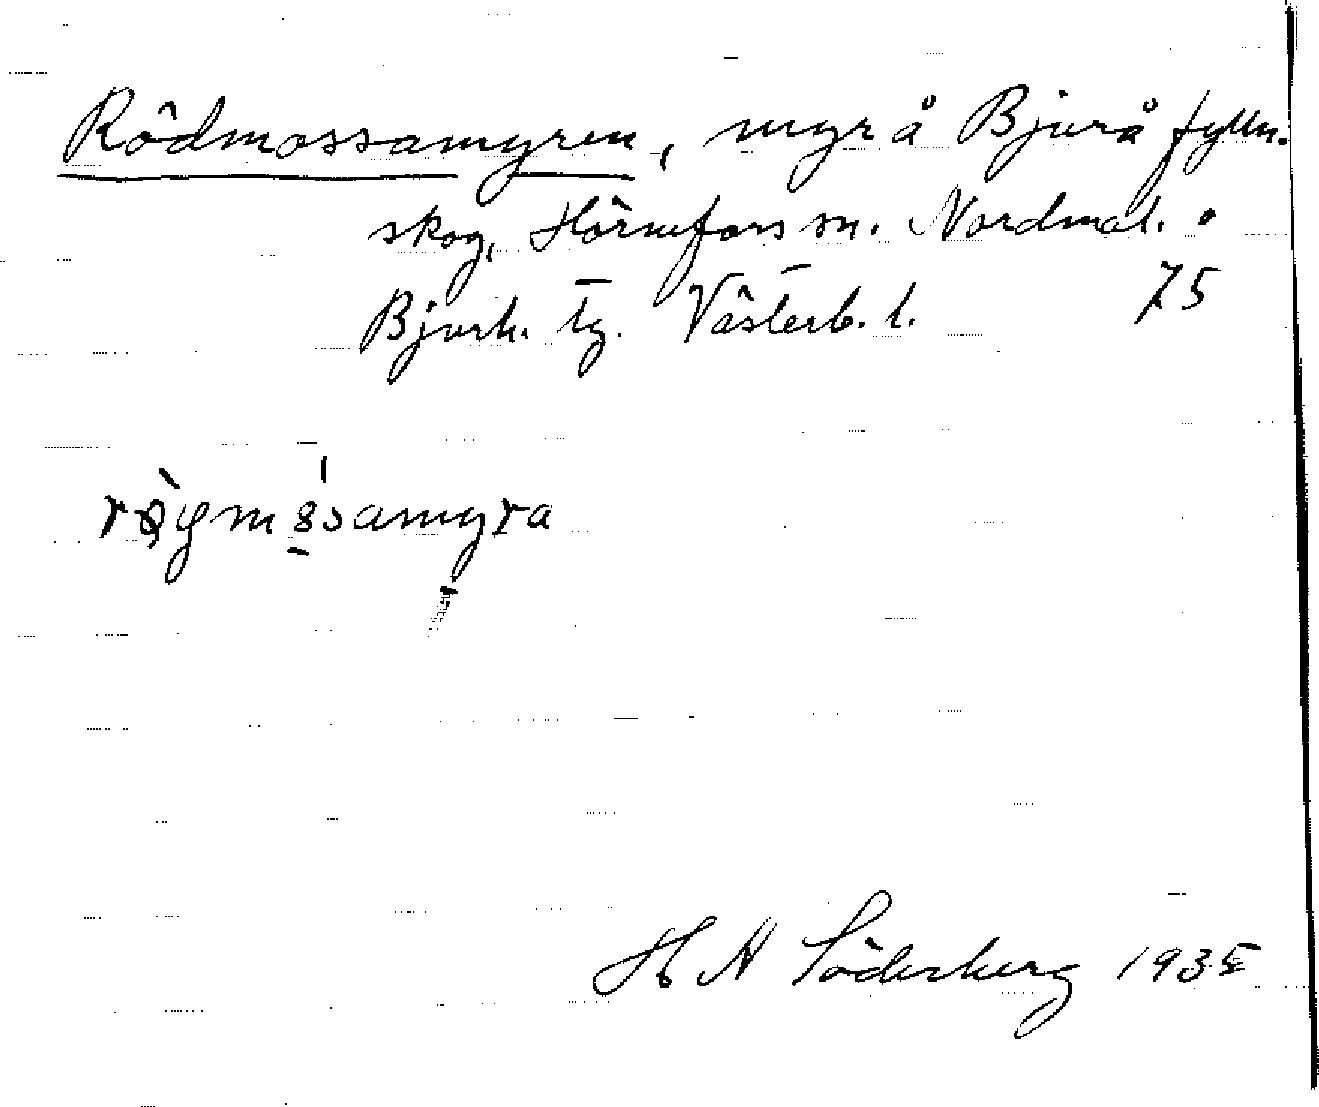 Rödmossamyren, myr å Bjurå fylln.
skog, Hörnefors sn. Nordmal. o
Bjurh. tg. Västerb. l. 75
H N Söderberg 1935